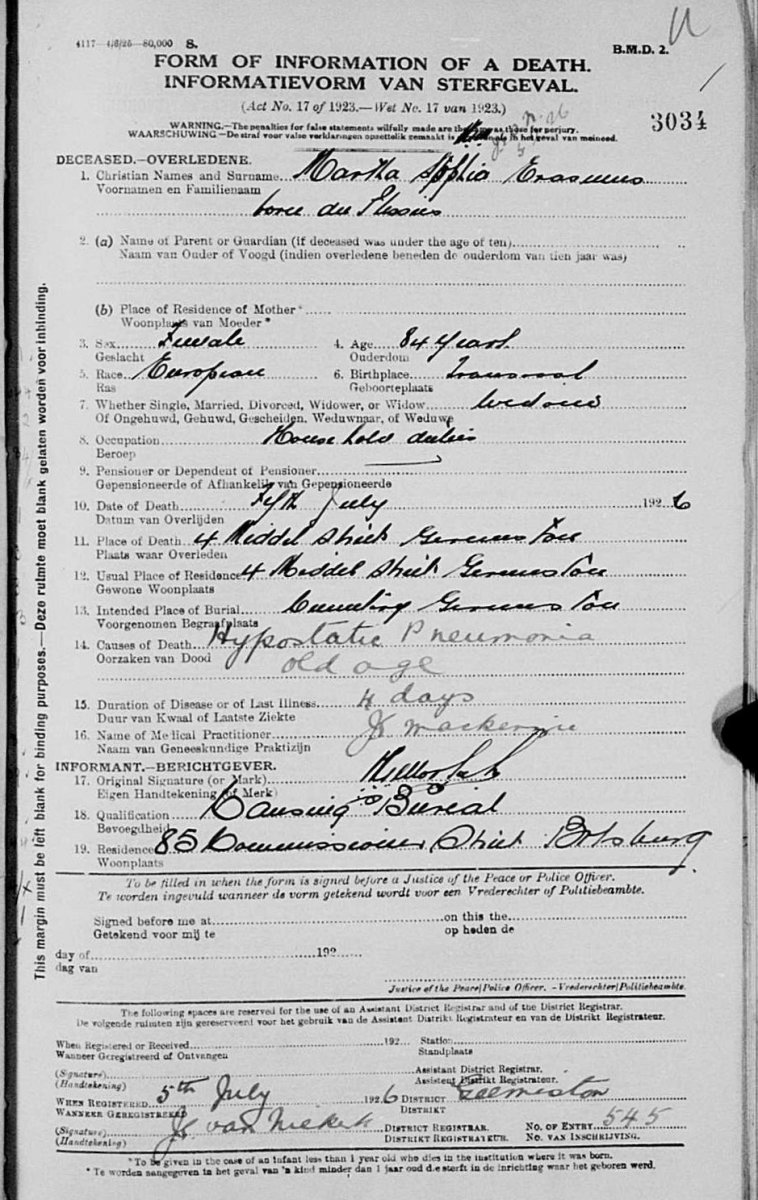 4117—4/6/25—80,000 S.
B.M.D. 2.
FORM OF INFORMATION OF A DEATH.
INFORMATIEVORM VAN STERFGEVAL.
(Act No. 17 of 1923.—Wet No. 17 van 1923.)
3034
WARNING.—The penalties for false statements wilfully made are the same as those for perjury.
WAARSCHUWING.—De straf voor valse verklaringen opzettelik gemaakt is in het geval van meineed.
DECEASED.—OVERLEDENE.
1. Christian Names and Surname Martha Sophia Erasmus
Voornamen en Familienaam
born du Plessis
2. (a) Name of Parent or Guardian (if deceased was under the age of ten)
Naam van Ouder of Voogd (indien overledene beneden de ouderdom van tien jaar was)
(b) Place of Residence of Mother*
Woonplaats van Moeder*
3. Sex Female 4. Age 84 years
Geslacht Ouderdom
5. Race European 6. Birthplace Transvaal
Ras Geboorteplaats
7. Whether Single, Married, Divorced, Widower, or Widow Widow
Of Ongehuwd, Gehuwd, Gescheiden, Weduwnaar, of Weduwe
8. Occupation House hold duties
Beroep
9. Pensioner or Dependent of Pensioner
Gepensioneerde of Afhankelik van Gepensioneerde
10. Date of Death Fifth July 1926
Datum van Overlijden
11. Place of Death 4 Middel Street Germiston
Plaats waar Overleden
12. Usual Place of Residence 4 Middel Street Germiston
Gewone Woonplaats
13. Intended Place of Burial Cemetery Germiston
Voorgenomen Begraafplaats
14. Causes of Death Hypostatic Pneumonia
Oorzaken van Dood old age
15. Duration of Disease or of Last Illness 4 days
Duur van Kwaal of Laatste Ziekte
16. Name of Medical Practitioner Mackenzie
Naam van Geneeskundige Praktizijn
INFORMANT.—BERICHTGEVER.
17. Original Signature (or Mark)
Eigen Handtekening (of Merk)
18. Qualification Causing Burial
Bevoegdheid
19. Residence 85 Commissioner Street Boksburg
Woonplaats
To be filled in when the form is signed before a Justice of the Peace or Police Officer.
Te worden ingevuld wanneer de vorm getekend wordt voor een Vrederechter of Politiebeambte.
Signed before me at on this the
Getekend voor mij te op heden de
day of 192
dag van
Justice of the Peace/Police Officer.—Vrederechter/Politiebeambte.
The following spaces are reserved for the use of an Assistant District Registrar and of the District Registrar.
De volgende ruimten zijn gereserveerd voor het gebruik van de Assistent Distrikt Registrateur en van de Distrikt Registrateur.
When Registered or Received 192 Station
Wanneer Geregistreerd of Ontvangen Standplaats
(Signature) Assistant District Registrar.
(Handtekening) Assistent Distrikt Registrateur.
WHEN REGISTERED 5th July 1926 DISTRICT Germiston
WANNEER GEREGISTREERD DISTRIKT
(Signature) van Niekerk DISTRICT REGISTRAR. NO. OF ENTRY 545
(Handtekening) DISTRIKT REGISTRATEUR. NO. VAN INSCHRIJVING.
*To be given in the case of an infant less than 1 year old who dies in the institution where it was born.
*Te worden aangegeven in het geval van 'n kind minder dan 1 jaar oud die sterft in de inrichting waar het geboren werd.
This margin must be left blank for binding purposes.—Deze ruimte moet blank gelaten worden voor inbinding.